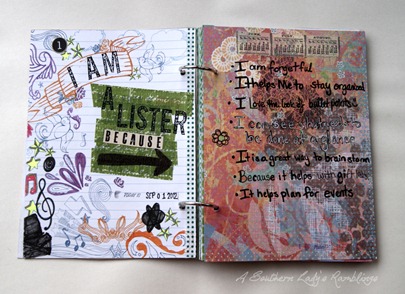 1
I AM
A LISTER
BECAUSE
SEP 01 2012
I am forgetful
It helps Me to stay organized
• I love the look of bullet points!
• It is a great way to brainstorm
• Because it helps with gift
• It helps plan for events
A Southern Lady's Ramblings